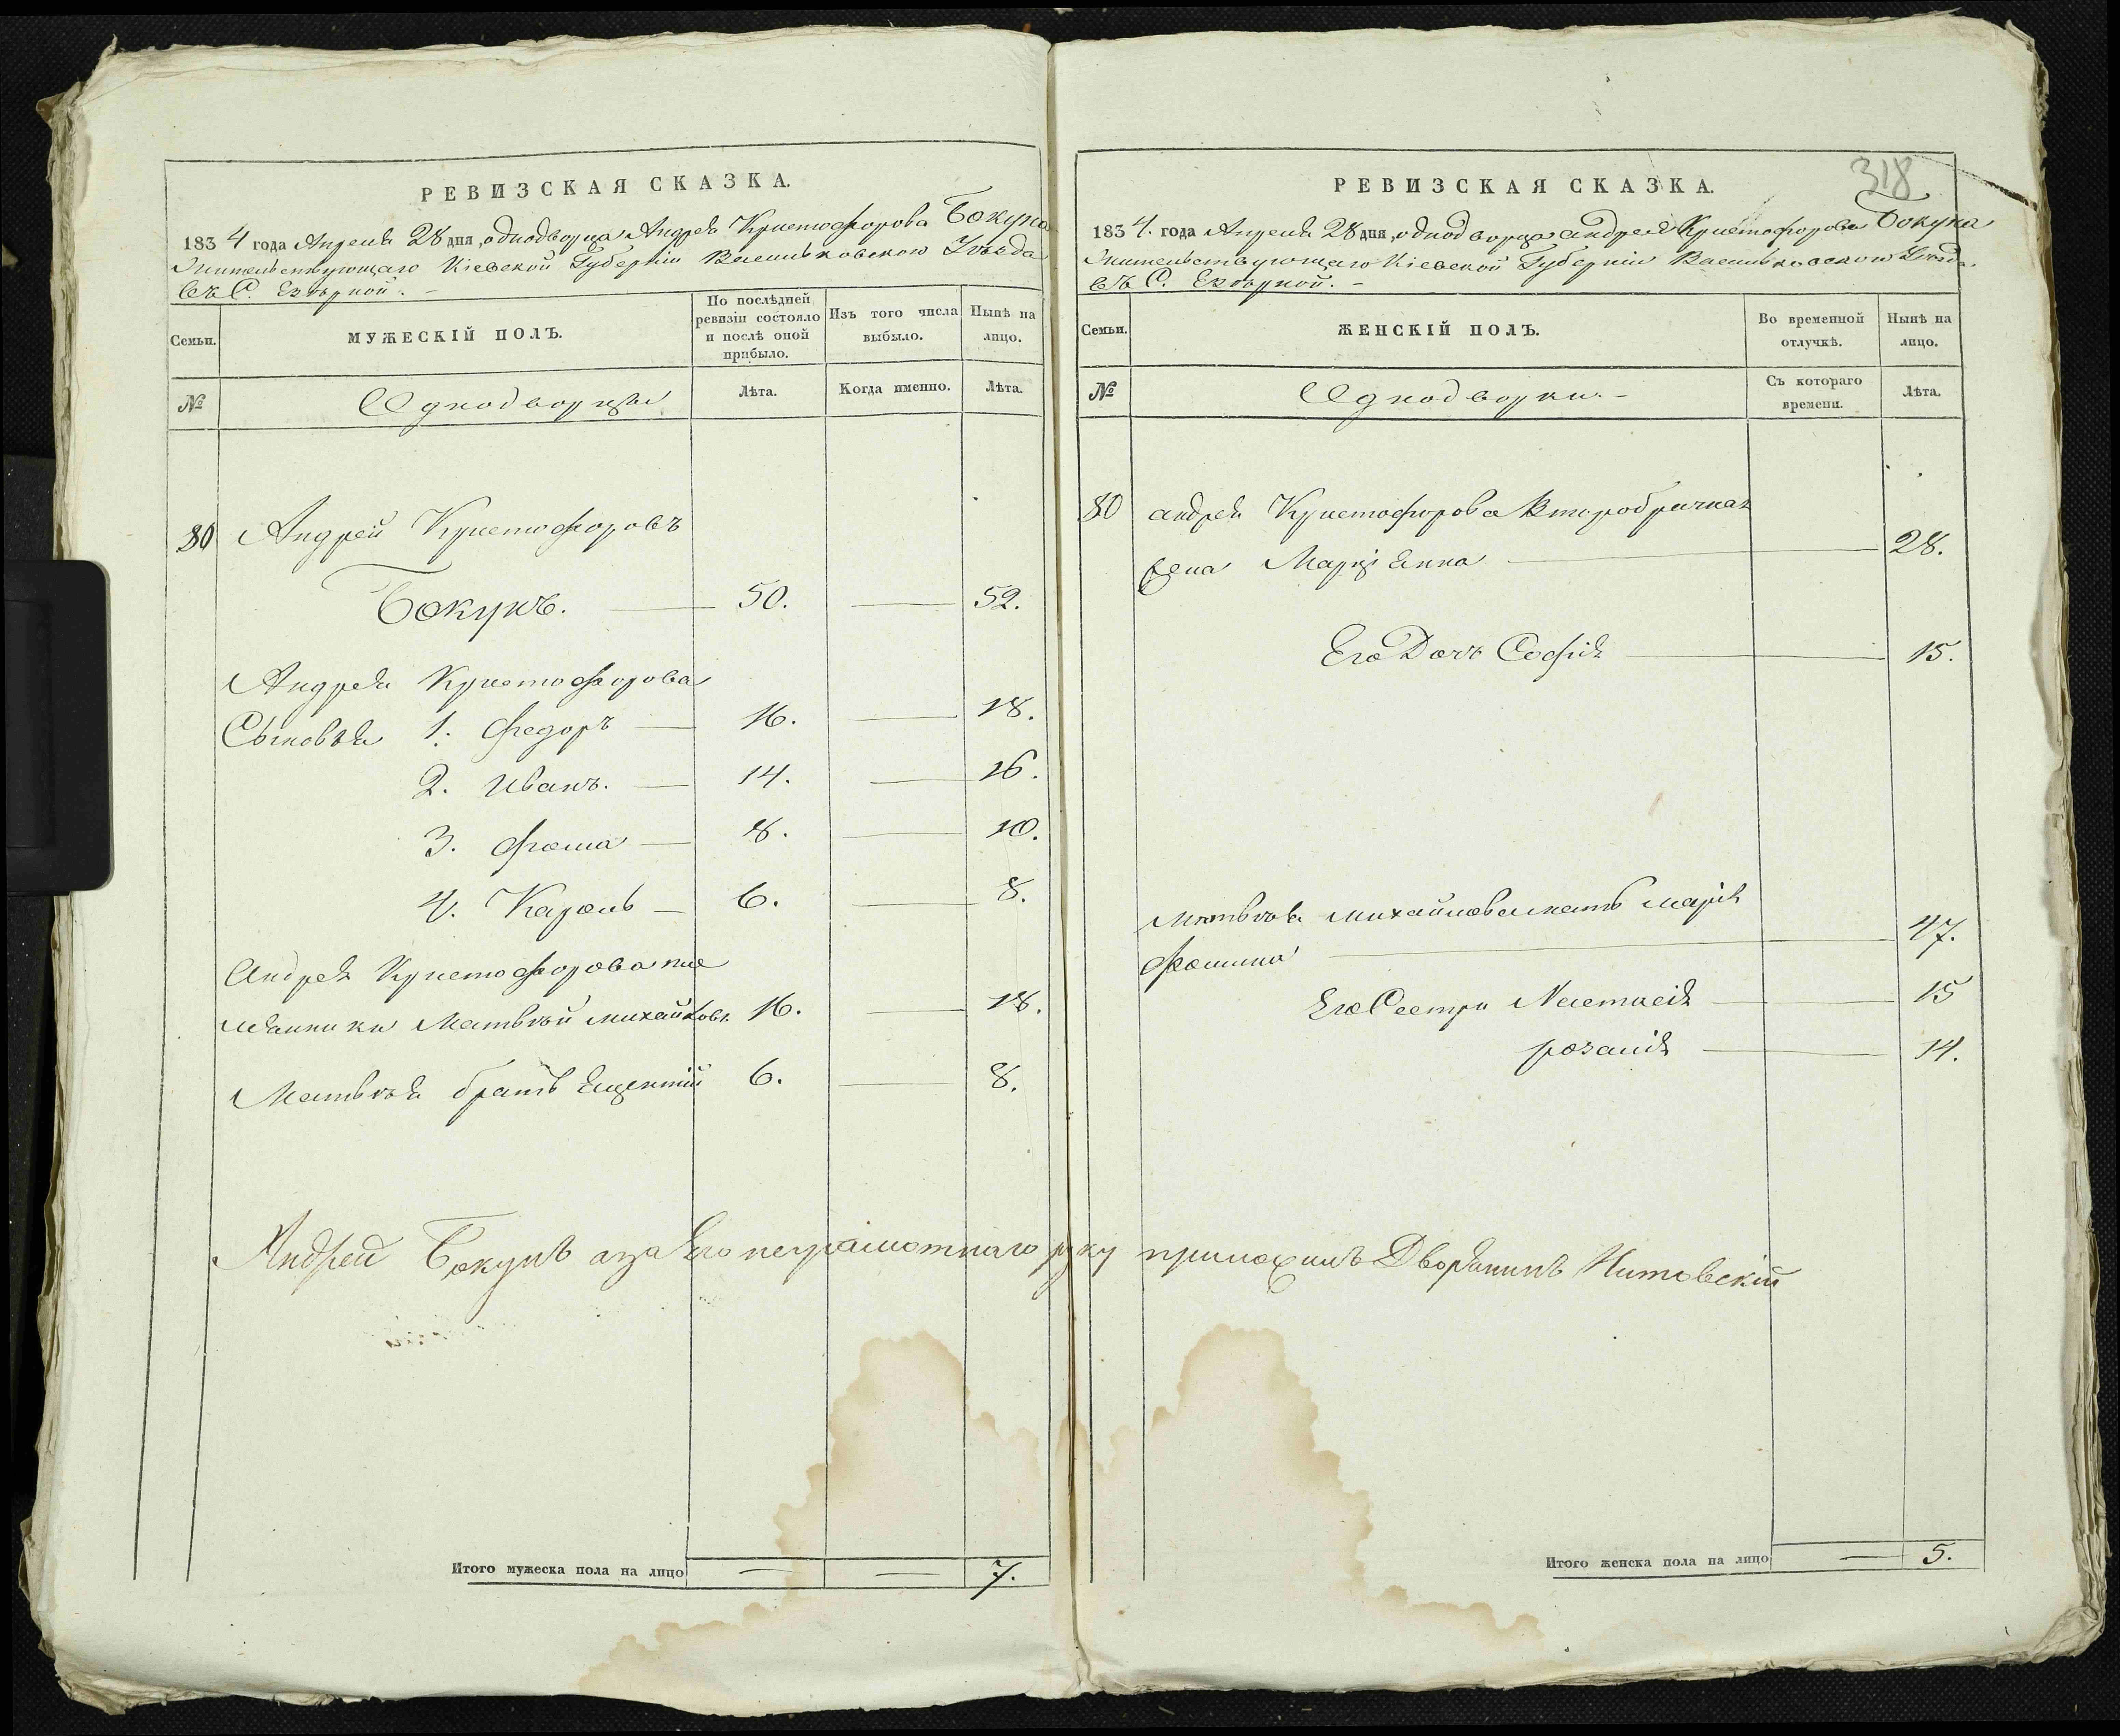 РЕВИЗСКАЯ СКАЗКА.
1834 года Апреля 28 дня, однодворца Андрея Кристофорова Бокуна
Жительствующаго Кіевской Губерніи Васильковского Уѣзда
въ С. Езѣрной. –
Семьи.
МУЖЕСКІЙ ПОЛЪ.
По послѣдней ревизіи состояло и послѣ оной прибыло.
Изъ того числа выбыло.
Нынѣ на лицо.
№
Однодворцы
Лѣта.
Когда именно.
Лѣта.
80 Андрей Кристофоровъ
Бокунъ. — 50. — 52.
Андрея Кристофорова
Сыновья 1. Федоръ — 16. — 18.
2. Иванъ. — 14. — 16.
3. Фома — 8. — 10.
4. Кароль — 6. — 8.
Андрея Кристофорова пле
мянники Матвѣй Михайловъ 16. — 18.
Матвѣя братъ 6. — 8.
Итого мужеска пола на лицо — — 7.
318
РЕВИЗСКАЯ СКАЗКА.
1834. года Апреля 28 дня, однодворца андрея Кристофорова Бокуна
Жительствующаго Кіевской Губерніи Васильковского Уѣзда
въ С. Езѣрной. –
Семьи.
ЖЕНСКІЙ ПОЛЪ.
Во временной отлучкѣ.
Нынѣ на лицо.
№
Однодворки. –
Съ котораго времени.
Лѣта.
80 андрея Кристофорова Второбрачная
жена Маріянна — 28.
Его Дочь Софія — 15.
Матвѣя Михайлова мать Марія
Фомина — 47.
Его Сестри Настасія — 15
розалія — 14.
Андрей Бокунъ аза Его неграмотнаго руку приложилъ Дворянинъ
Итого женска пола на лицо — 5.